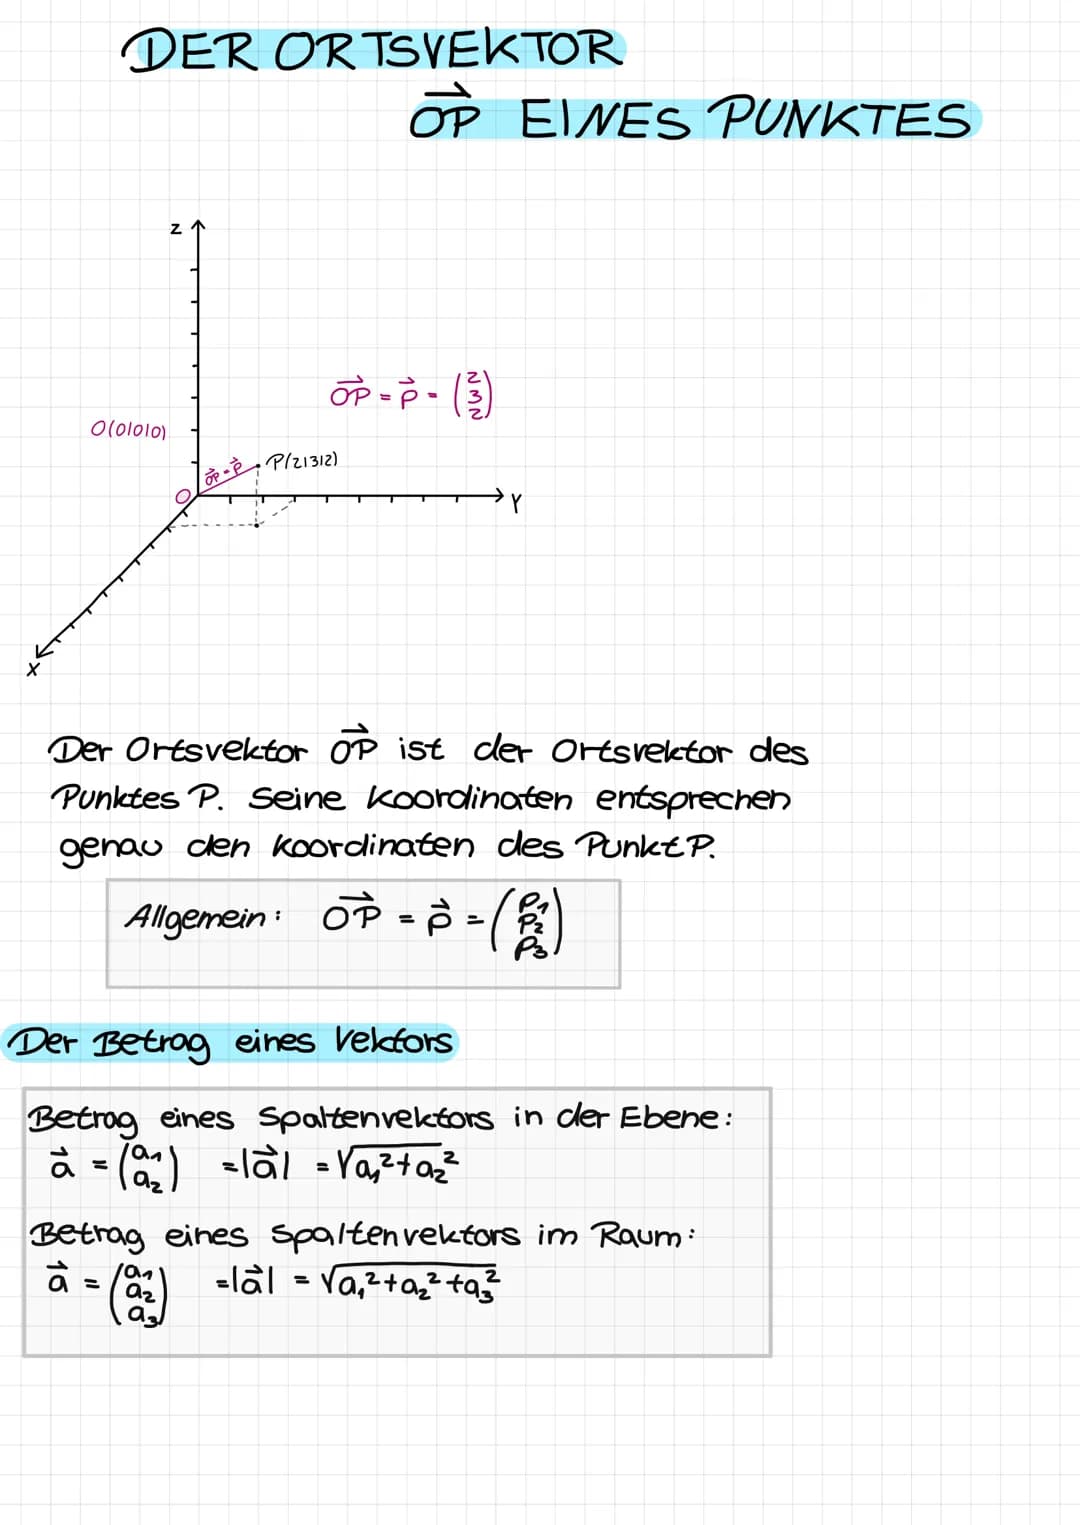 DER ORTSVEKTOR
OP⃗ EINES PUNKTES
Z
OP⃗ = p⃗ = (2 3 2)
O(0|0|0)
OP⃗ = p⃗
P(2|3|2)
O
Y
X
Der Ortsvektor OP⃗ ist der Ortsvektor des
Punktes P. Seine Koordinaten entsprechen
genau den Koordinaten des Punkt P.
Allgemein: OP⃗ = p⃗ = (P₁ P₂ P₃)
Der Betrag eines Vektors
Betrag eines Spaltenvektors in der Ebene:
a⃗ = (a₁ a₂) =|a⃗| = √a₁²+a₂²
Betrag eines Spaltenvektors im Raum:
a⃗ = (a₁ a₂ a₃) =|a⃗| = √a₁²+a₂²+a₃²